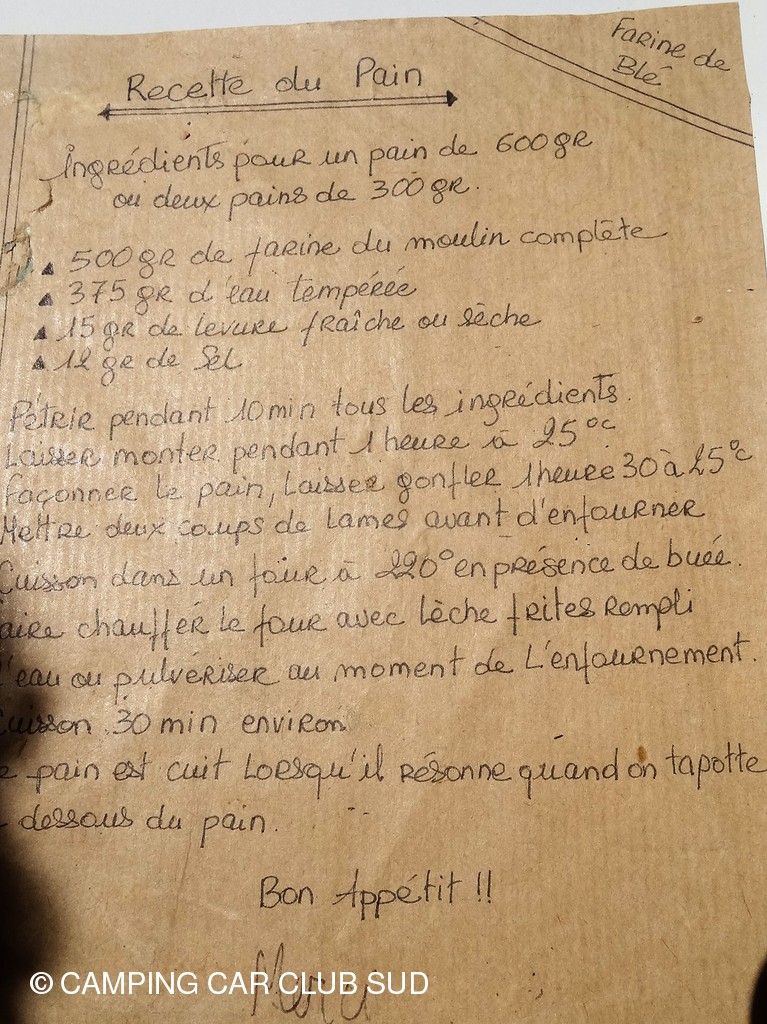 Farine de
Blé
Recette du Pain
Ingrédients pour un pain de 600gr
ou deux pains de 300gr.
▲ 500gr de farine du moulin complète
▲ 375 gr d'eau tempérée
▲ 15 gr de levure fraîche ou sèche
▲ 12 gr de Sel
Pétrir pendant 10min tous les ingrédients.
Laisser monter pendant 1heure à 25°c.
Façonner le pain, laisser gonfler 1heure 30 à 25°c
Mettre deux coups de lames avant d'enfourner
Cuisson dans un four à 220° en présence de buée.
aire chauffer le four avec lèche frites rempli
'eau ou pulvériser au moment de l'enfournement.
Cuisson 30 min environ
e pain est cuit lorsqu'il résonne quand on tapotte
dessous du pain.
Bon Appétit !!
Merci
© CAMPING CAR CLUB SUD